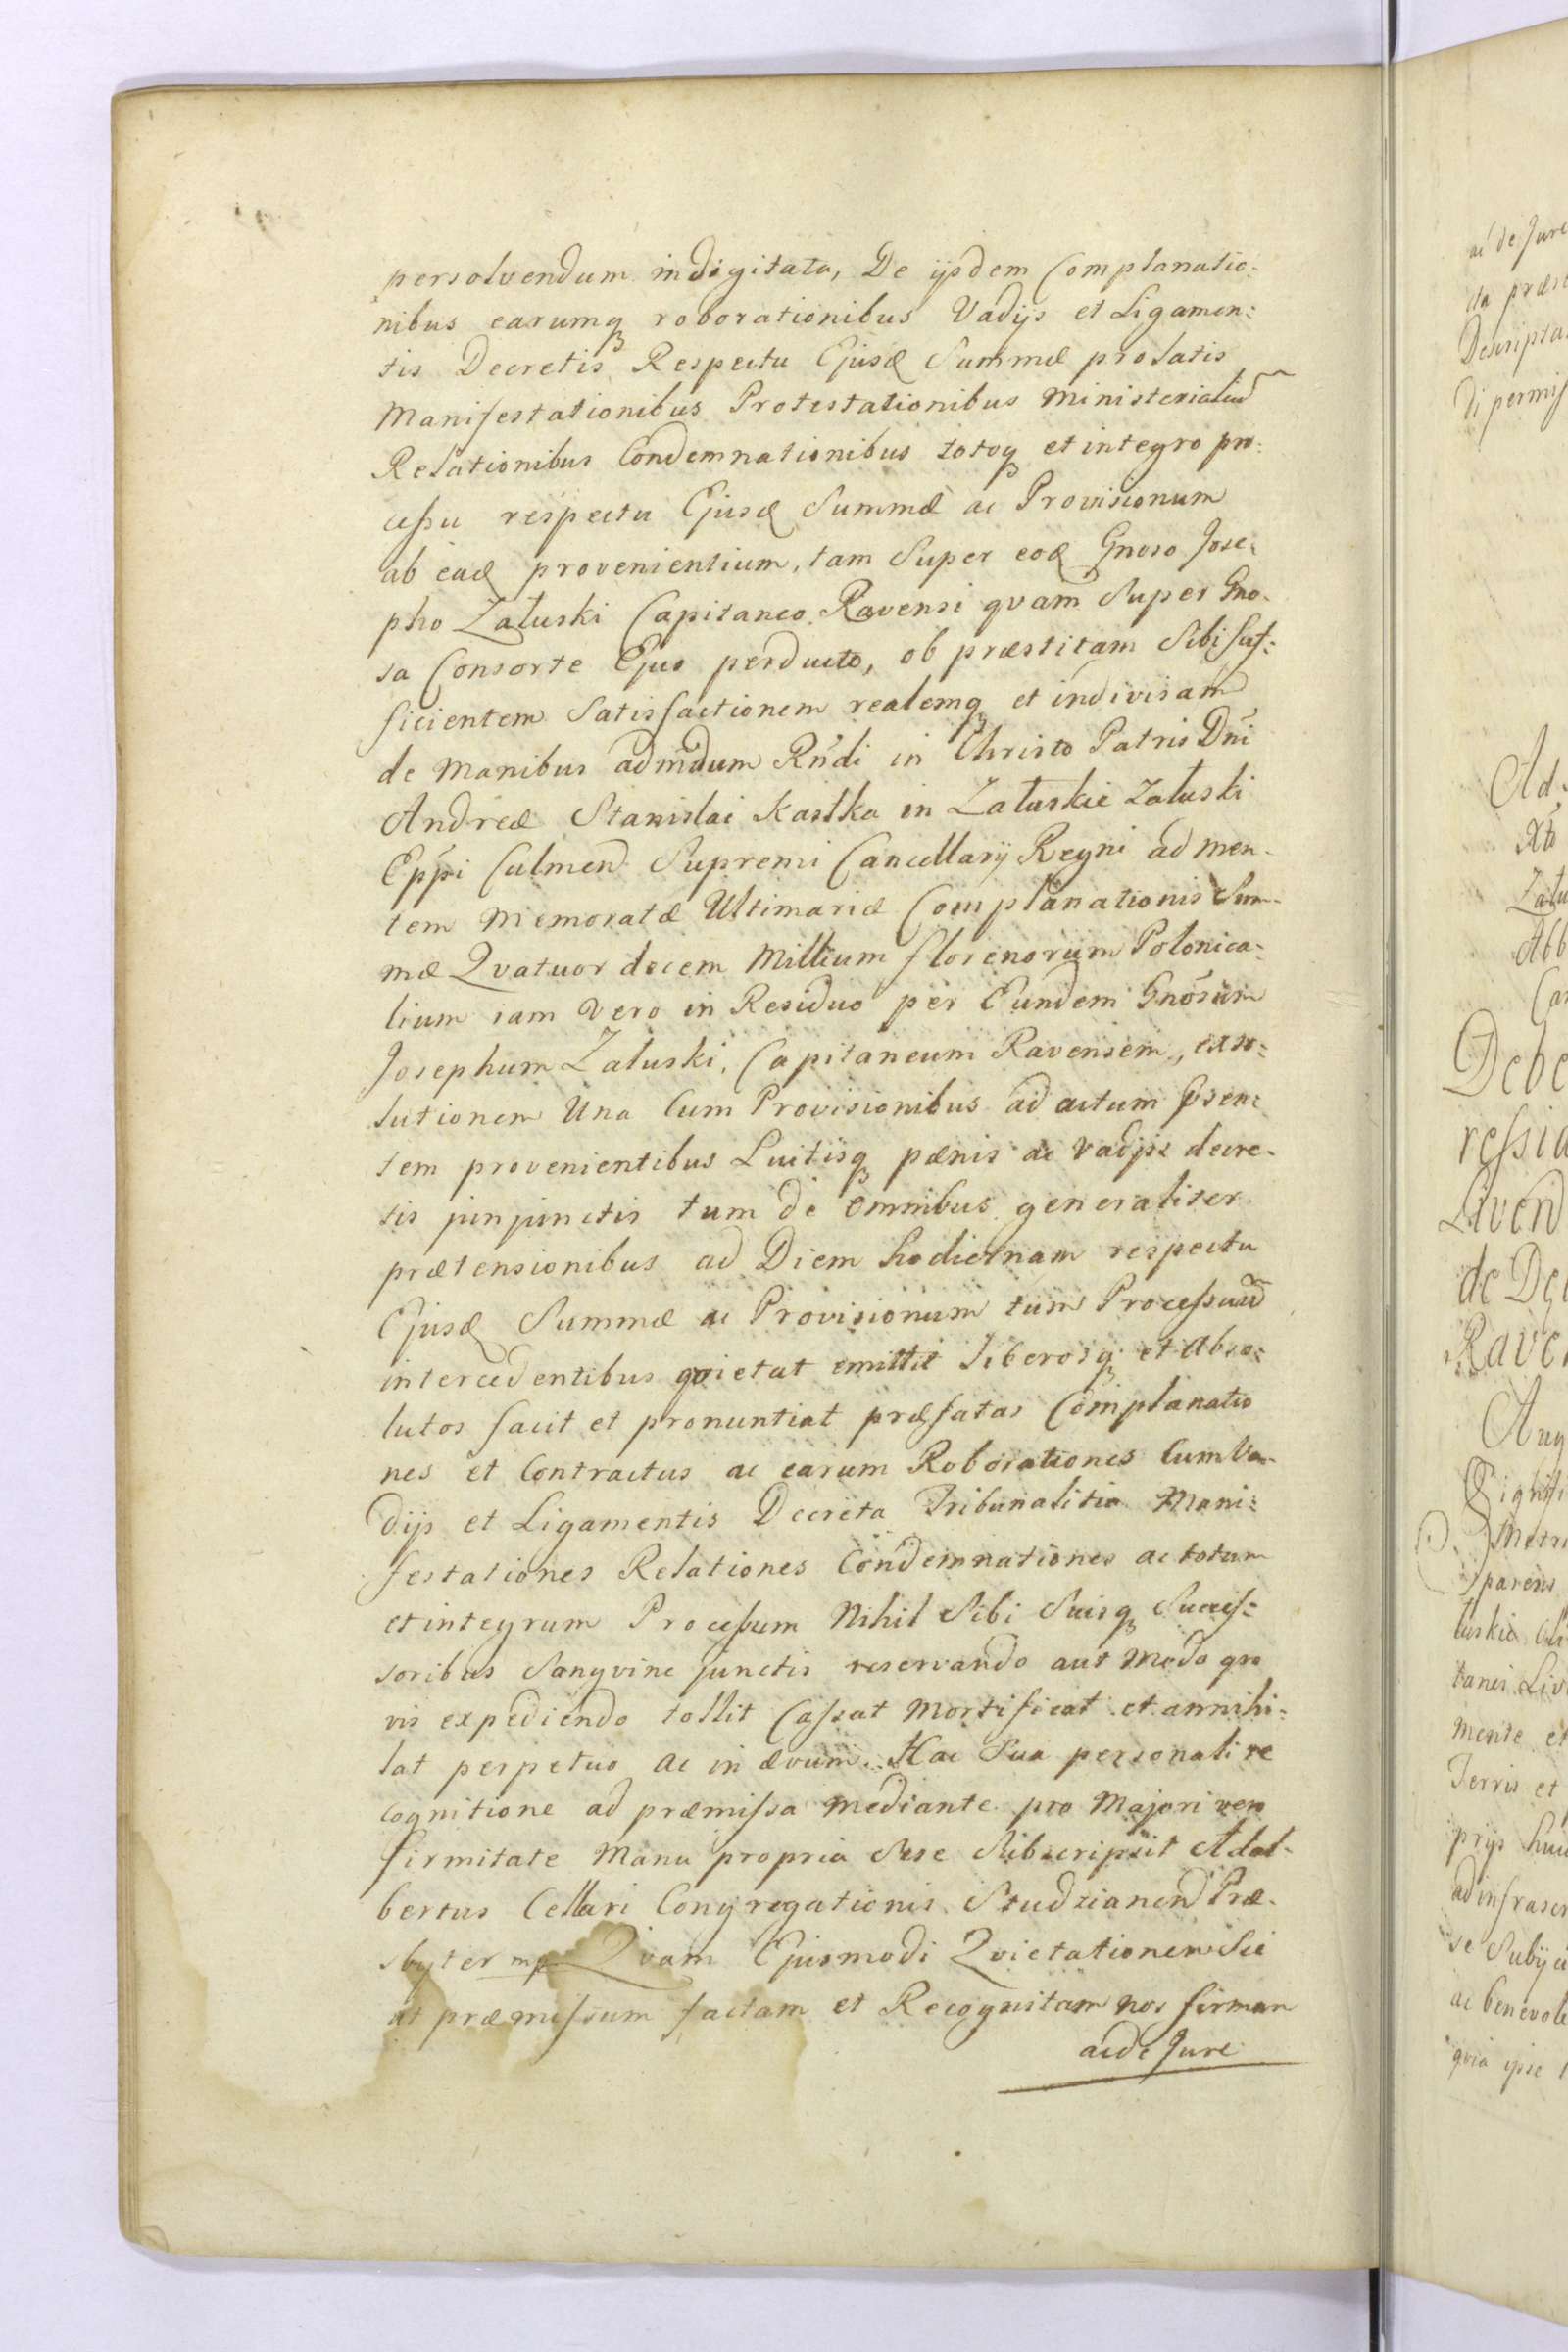 persolvendum indigitata, De ijsdem Complanatio:
nibus earumq roborationibus Vadijs et Ligamen:
tis Decretis Respectu Ejusd Summæ prolatis
Manifestationibus Protestationibus Ministerialiu͂
Relationibus Condemnationibus totoq et integro pro:
cessu respectu Ejusd Summæ ac Provisionum
ab ead provenientium, tam Super eod Gnoso Jose:
pho Załuski Capitaneo Ravensi qvam Super Gno-
sa Consorte Ejus perducto, ob præstitam Sibi suf:
ficientem Satisfactionem realemq et indivisam
de Manibus admdum Rńdi in Christo Patris Dńi
Andreæ Stanislai Kastka in Załuskie Załuski
Eppi Culmen Supremi Cancellarij Regni ad men-
tem Memoratæ Ultimariæ Complanationis Sum-
mæ Qvatuor decem Millium florenorum Polonica-
lium iam vero in Residuo per Eundem Gnosum
Josephum Załuski, Capitaneum Ravensem, exso:
lutionem Una Cum Provisionibus ad actum Psen:
tem provenientibus Luitisq pænis ac vadijs decre-
tis injunctis tum de omnibus generaliter
prætensionibus ad Diem hodiernam respectu
Ejusd Summæ ac Provisionum tum Processuu͂
intercedentibus qvietat emittit liberosq et Abso:
lutos facit et pronuntiat præfatas Complanatio
nes et Contractus ac earum Roborationes Cum Va-
dijs et Ligamentis Decreta Tribunalitia Mani:
festationes Relationes Condemnationes ac totum
et integrum Processum Nihil Sibi Suisq Succes:
soribus Sangvine junctis reservando aut Modo qvo
vis expediendo tollit Cassat Mortificat et annihi:
lat perpetuo ac in ævum. Hac Sua personali re
cognitione ad præmissa Mediante pro Majori vero
firmitate Manu propria Sese Subscripsit Adal-
bertus Cellari Congregationis Studzianen Præ-
sbyter mp Qvam Ejusmodi Qvietationem Sic
ut præmissum factam et Recognitam nos firmam
ac de Jure
ac de Jure
Descripta
di permis
Ad
Xto
Abb
Debe
ressia
Livend
Rave
mente et
Terris et
se Subijci
ac benevole
qvia ipse